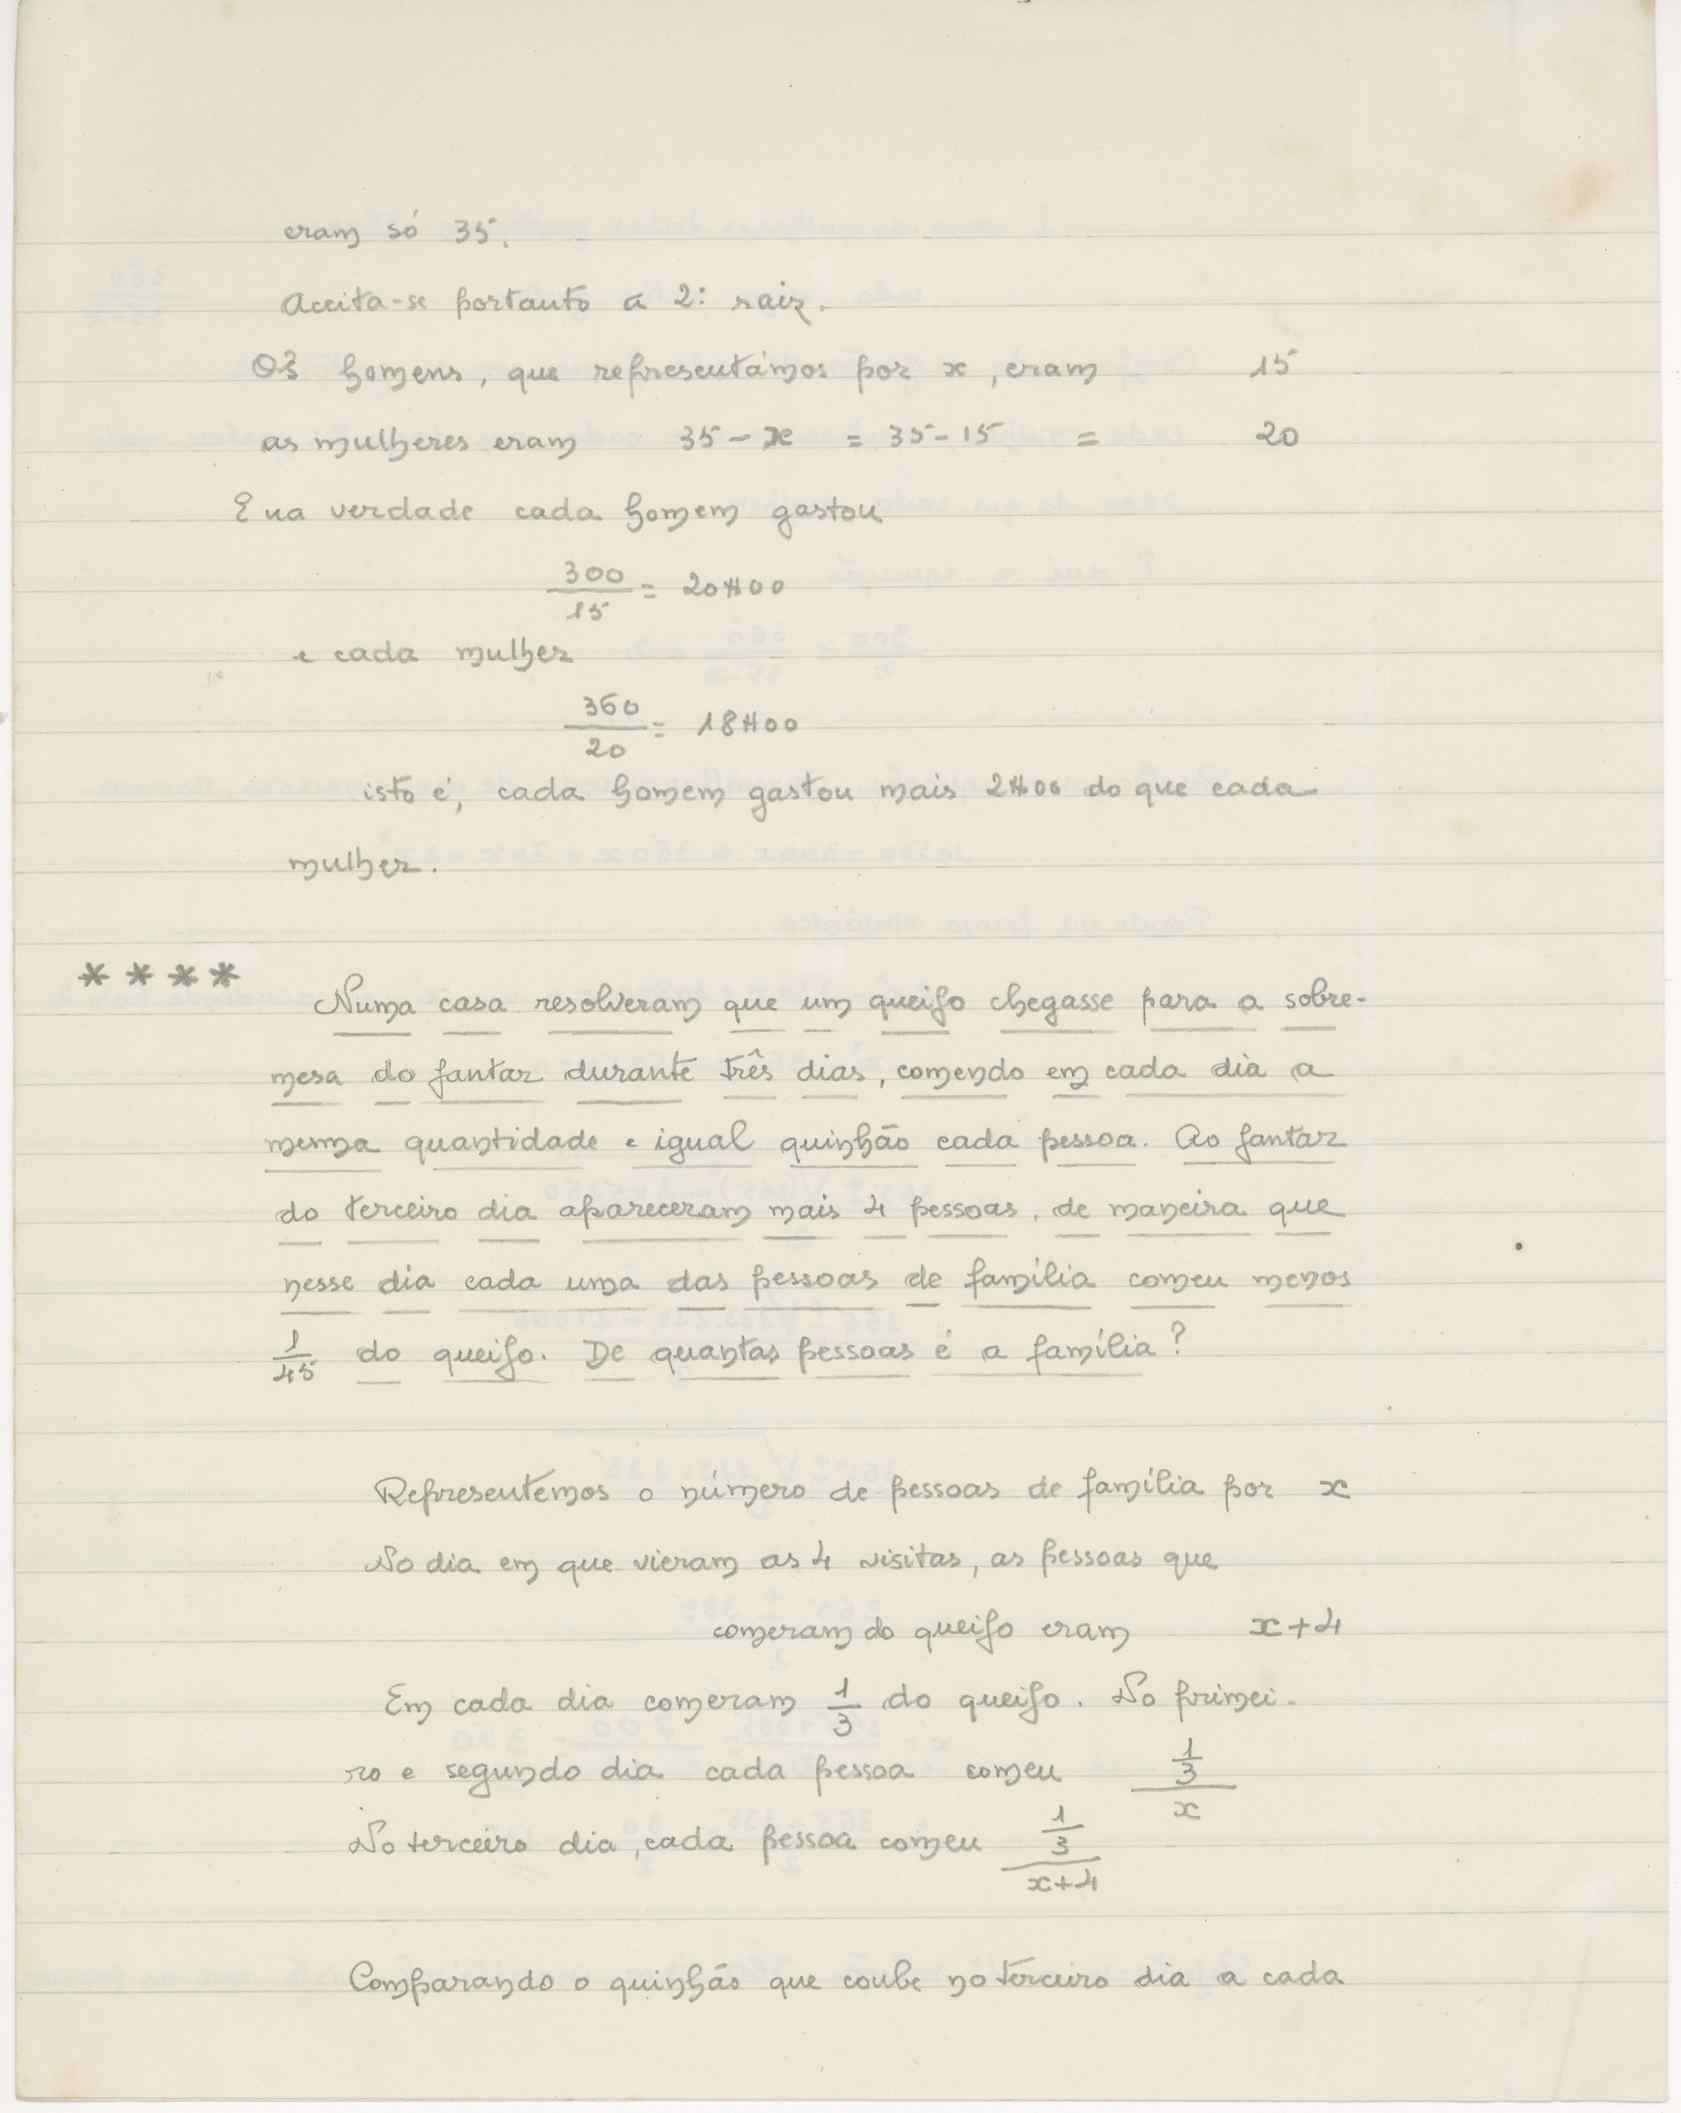 eram só 35.
Aceita-se portanto a 2ª raiz.
Os homens, que representámos por x, eram 15
as mulheres eram 35 - x = 35 - 15 = 20
E na verdade cada homem gastou
300/15 = 20$00
e cada mulher
360/20 = 18$00
isto é, cada homem gastou mais 2$00 do que cada
mulher.
**** Numa casa resolveram que um queijo chegasse para a sobre-
mesa do jantar durante três dias, comendo em cada dia a
mesma quantidade e igual quinhão cada pessoa. Ao jantar
do terceiro dia apareceram mais 4 pessoas, de maneira que
nesse dia cada uma das pessoas de família comeu menos
1/45 do queijo. De quantas pessoas é a família?
Representemos o número de pessoas de família por x
No dia em que vieram as 4 visitas, as pessoas que
comeram do queijo eram x+4
Em cada dia comeram 1/3 do queijo. No primei-
ro e segundo dia cada pessoa comeu (1/3)/x
No terceiro dia, cada pessoa comeu (1/3)/(x+4)
Comparando o quinhão que coube no terceiro dia a cada